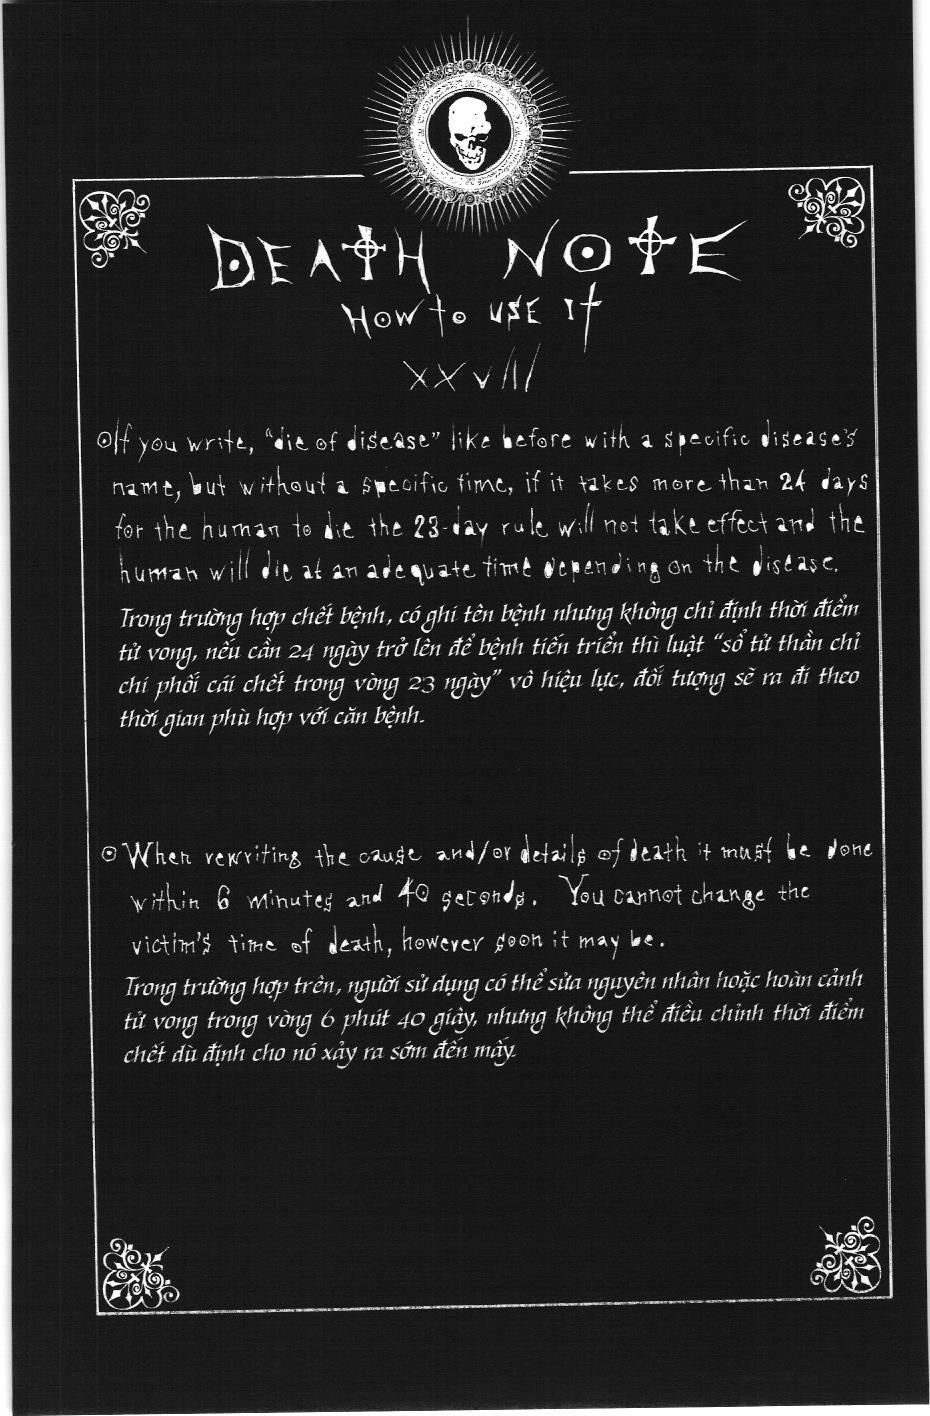 DEATH NOTE
HOW to USE It
XXVIII
If you write, "die of disease" like before with a specific disease's
name, but without a specific time, if it takes more than 24 days
for the human to die the 23-day rule will not take effect and the
human will die at an adequate time depending on the disease.
Trong trường hợp chết bệnh, có ghi tên bệnh nhưng không chỉ định thời điểm
tử vong, nếu cần 24 ngày trở lên để bệnh tiến triển thì luật "sổ tử thần chỉ
chi phối cái chết trong vòng 23 ngày" vô hiệu lực, đối tượng sẽ ra đi theo
thời gian phù hợp với căn bệnh.
When rewriting the cause and/or details of death it must be done
within 6 minutes and 40 seconds. You cannot change the
victim's time of death, however soon it may be.
Trong trường hợp trên, người sử dụng có thể sửa nguyên nhân hoặc hoàn cảnh
tử vong trong vòng 6 phút 40 giây, nhưng không thể điều chỉnh thời điểm
chết dù định cho nó xảy ra sớm đến mấy.